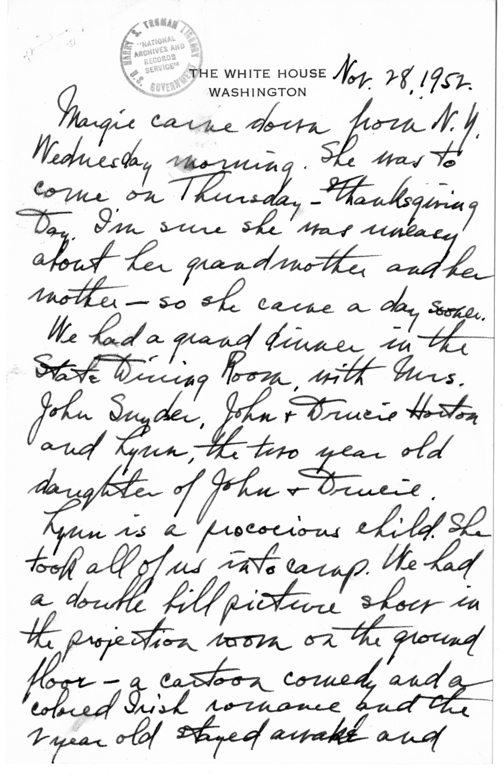 HARRY S. TRUMAN LIBRARY
"NATIONAL
ARCHIVES AND
RECORDS
SERVICE"
U.S. GOVERNMENT
THE WHITE HOUSE
WASHINGTON
Nov. 28, 1952.
Margie came down from N.Y.
Wednesday morning. She was to
come on Thursday – Thanksgiving
Day. I'm sure she was uneasy
about her grandmother and her
mother – so she came a day sooner.
We had a grand dinner in the
State Dining Room, with Mrs.
John Snyder, John & Drucie Horton
and Lynn, the two year old
daughter of John & Drucie.
Lynn is a prococious child. She
took all of us into camp. We had
a double bill picture show in
the projection room on the ground
floor – a cartoon comedy and a
colored Irish romance and the
2 year old stayed awake and